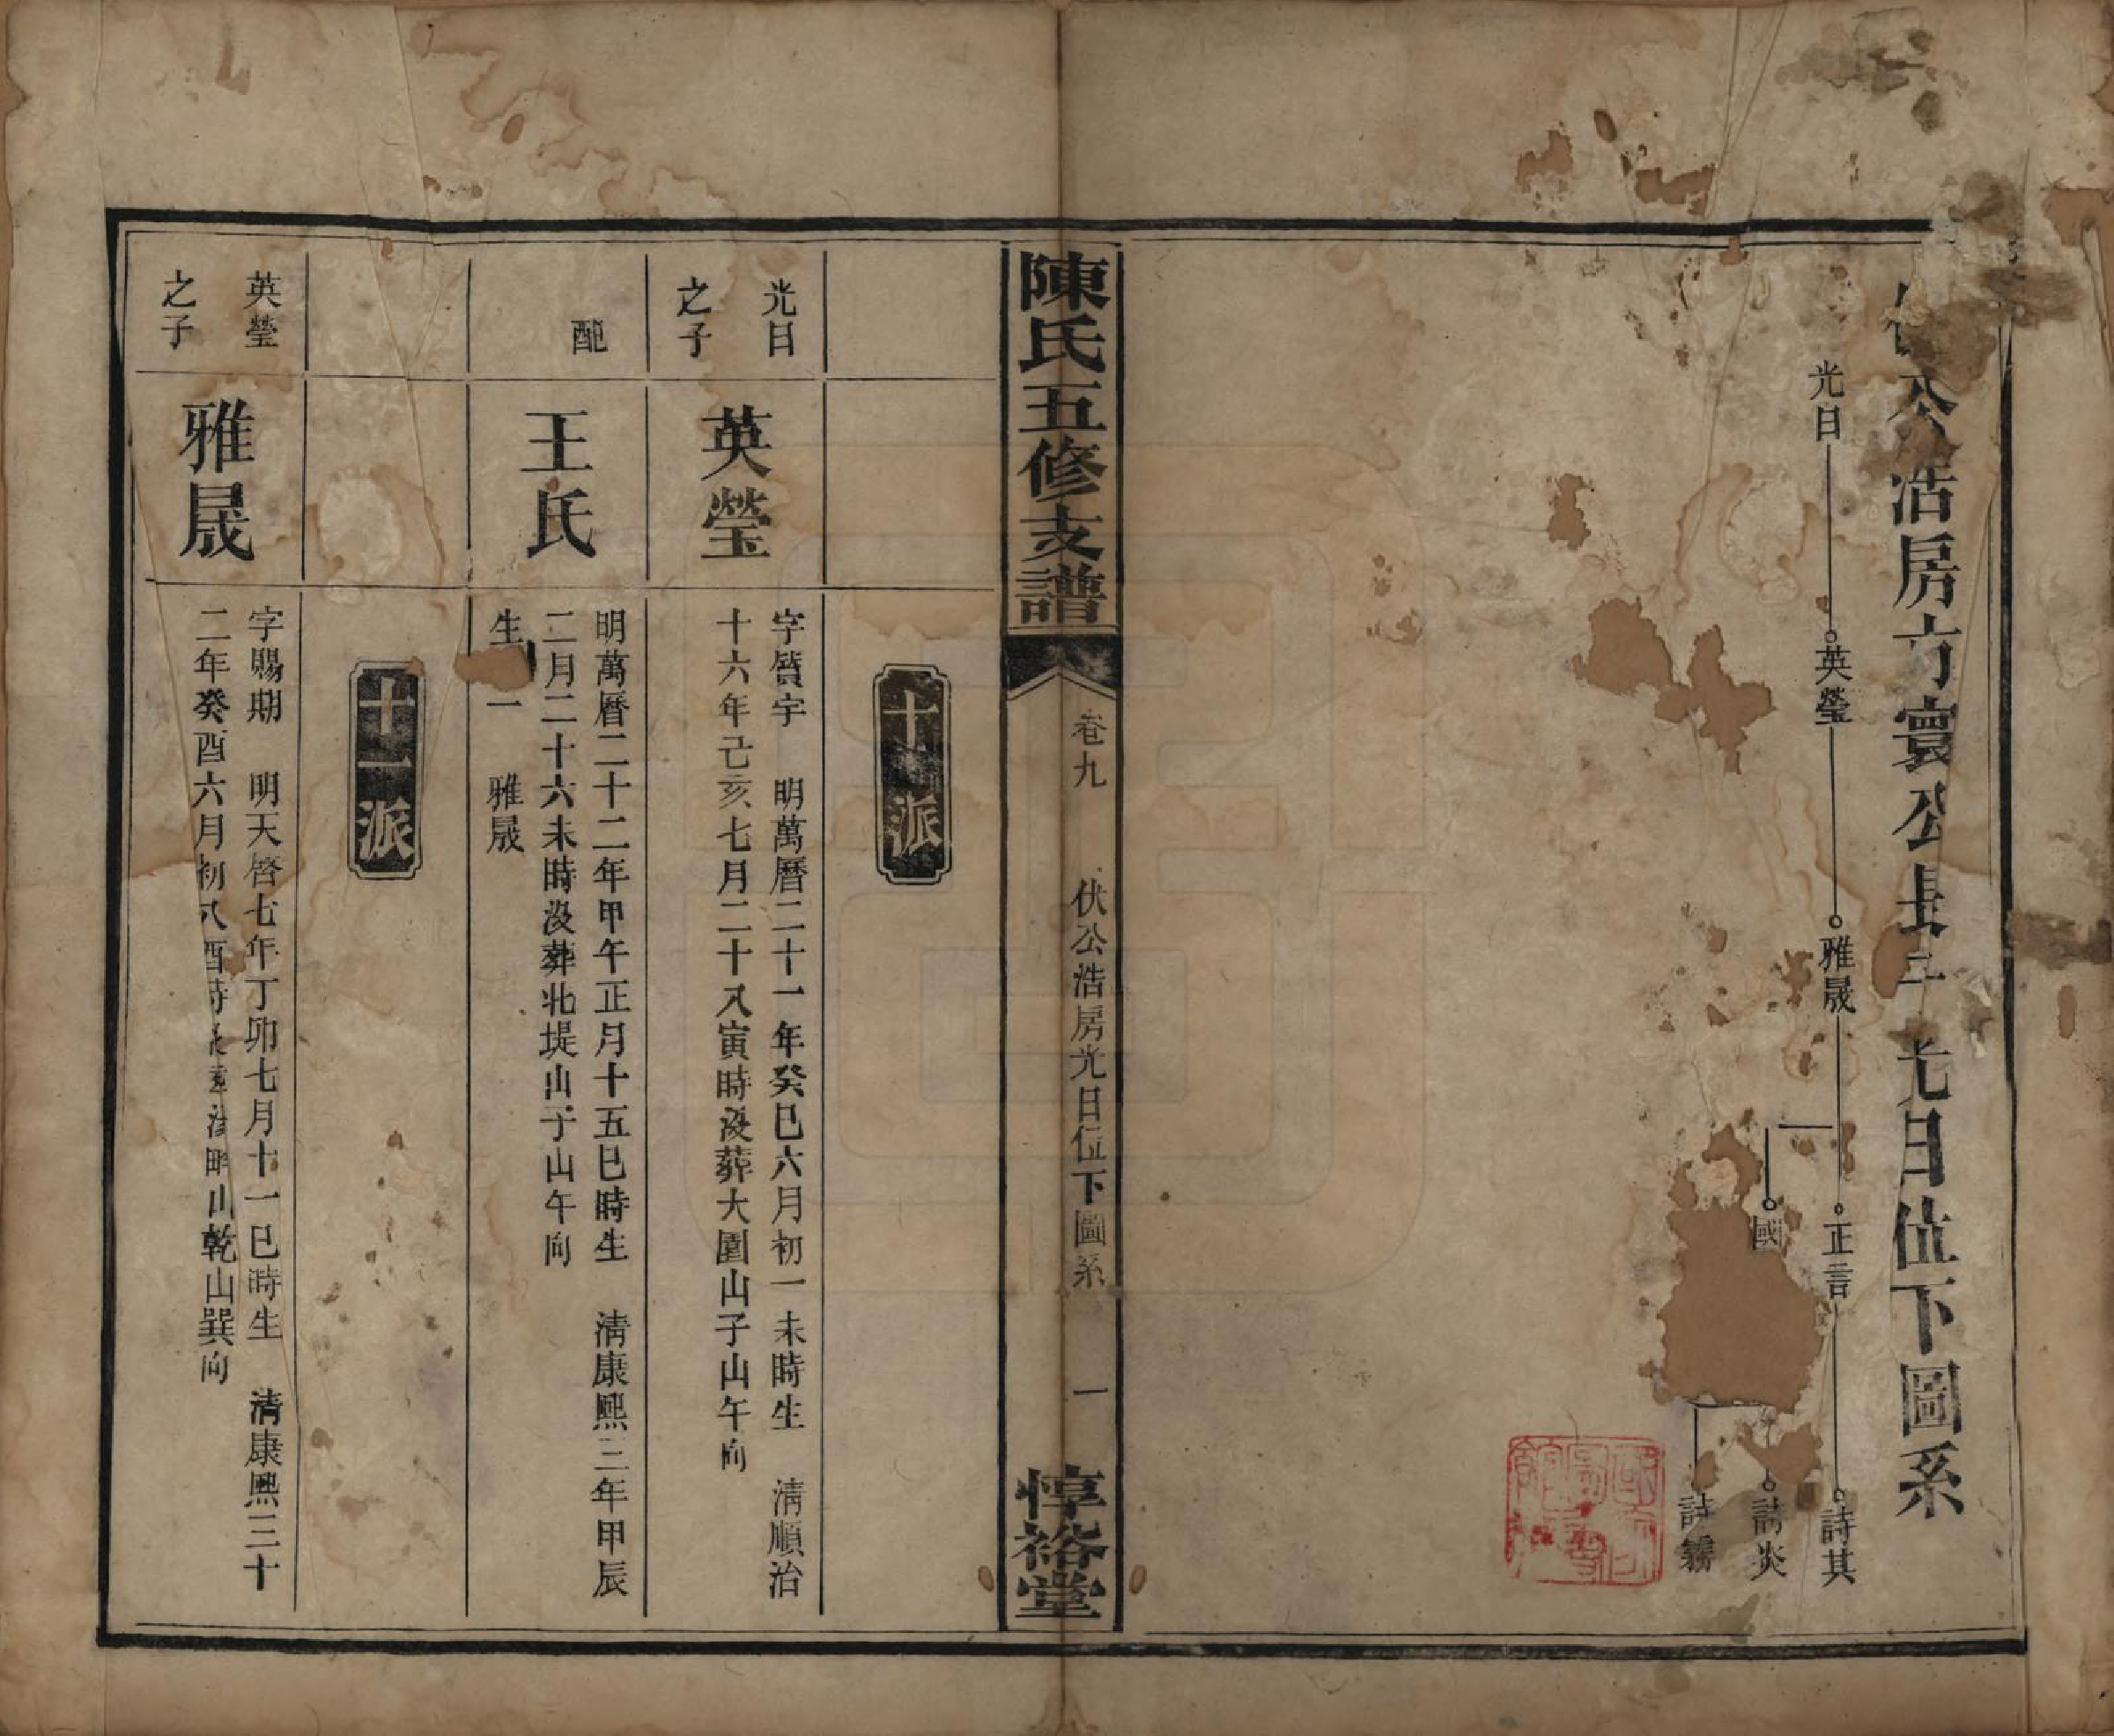 公浩房方寰公長子光日位下圖系
光日
英瑩
雅晟
正言
詩其
國
詩炎
陳氏五修支譜
卷九
伏公浩房光日位下圖系
一
惇裕堂
十派
光日
之子
英瑩
字贊宇　明萬曆二十一年癸巳六月初一未時生　清順治
十六年己亥七月二十八寅時沒葬大園山子山午向
配
王氏
明萬曆二十二年甲午正月十五巳時生　清康熙三年甲辰
二月二十六未時沒葬北堤山子山午向
生　一　雅晟
十一派
英瑩
之子
雅晟
字賜期　明天啓七年丁卯七月十一巳時生　清康熙三十
二年癸酉六月初八酉時　山乾山巽向